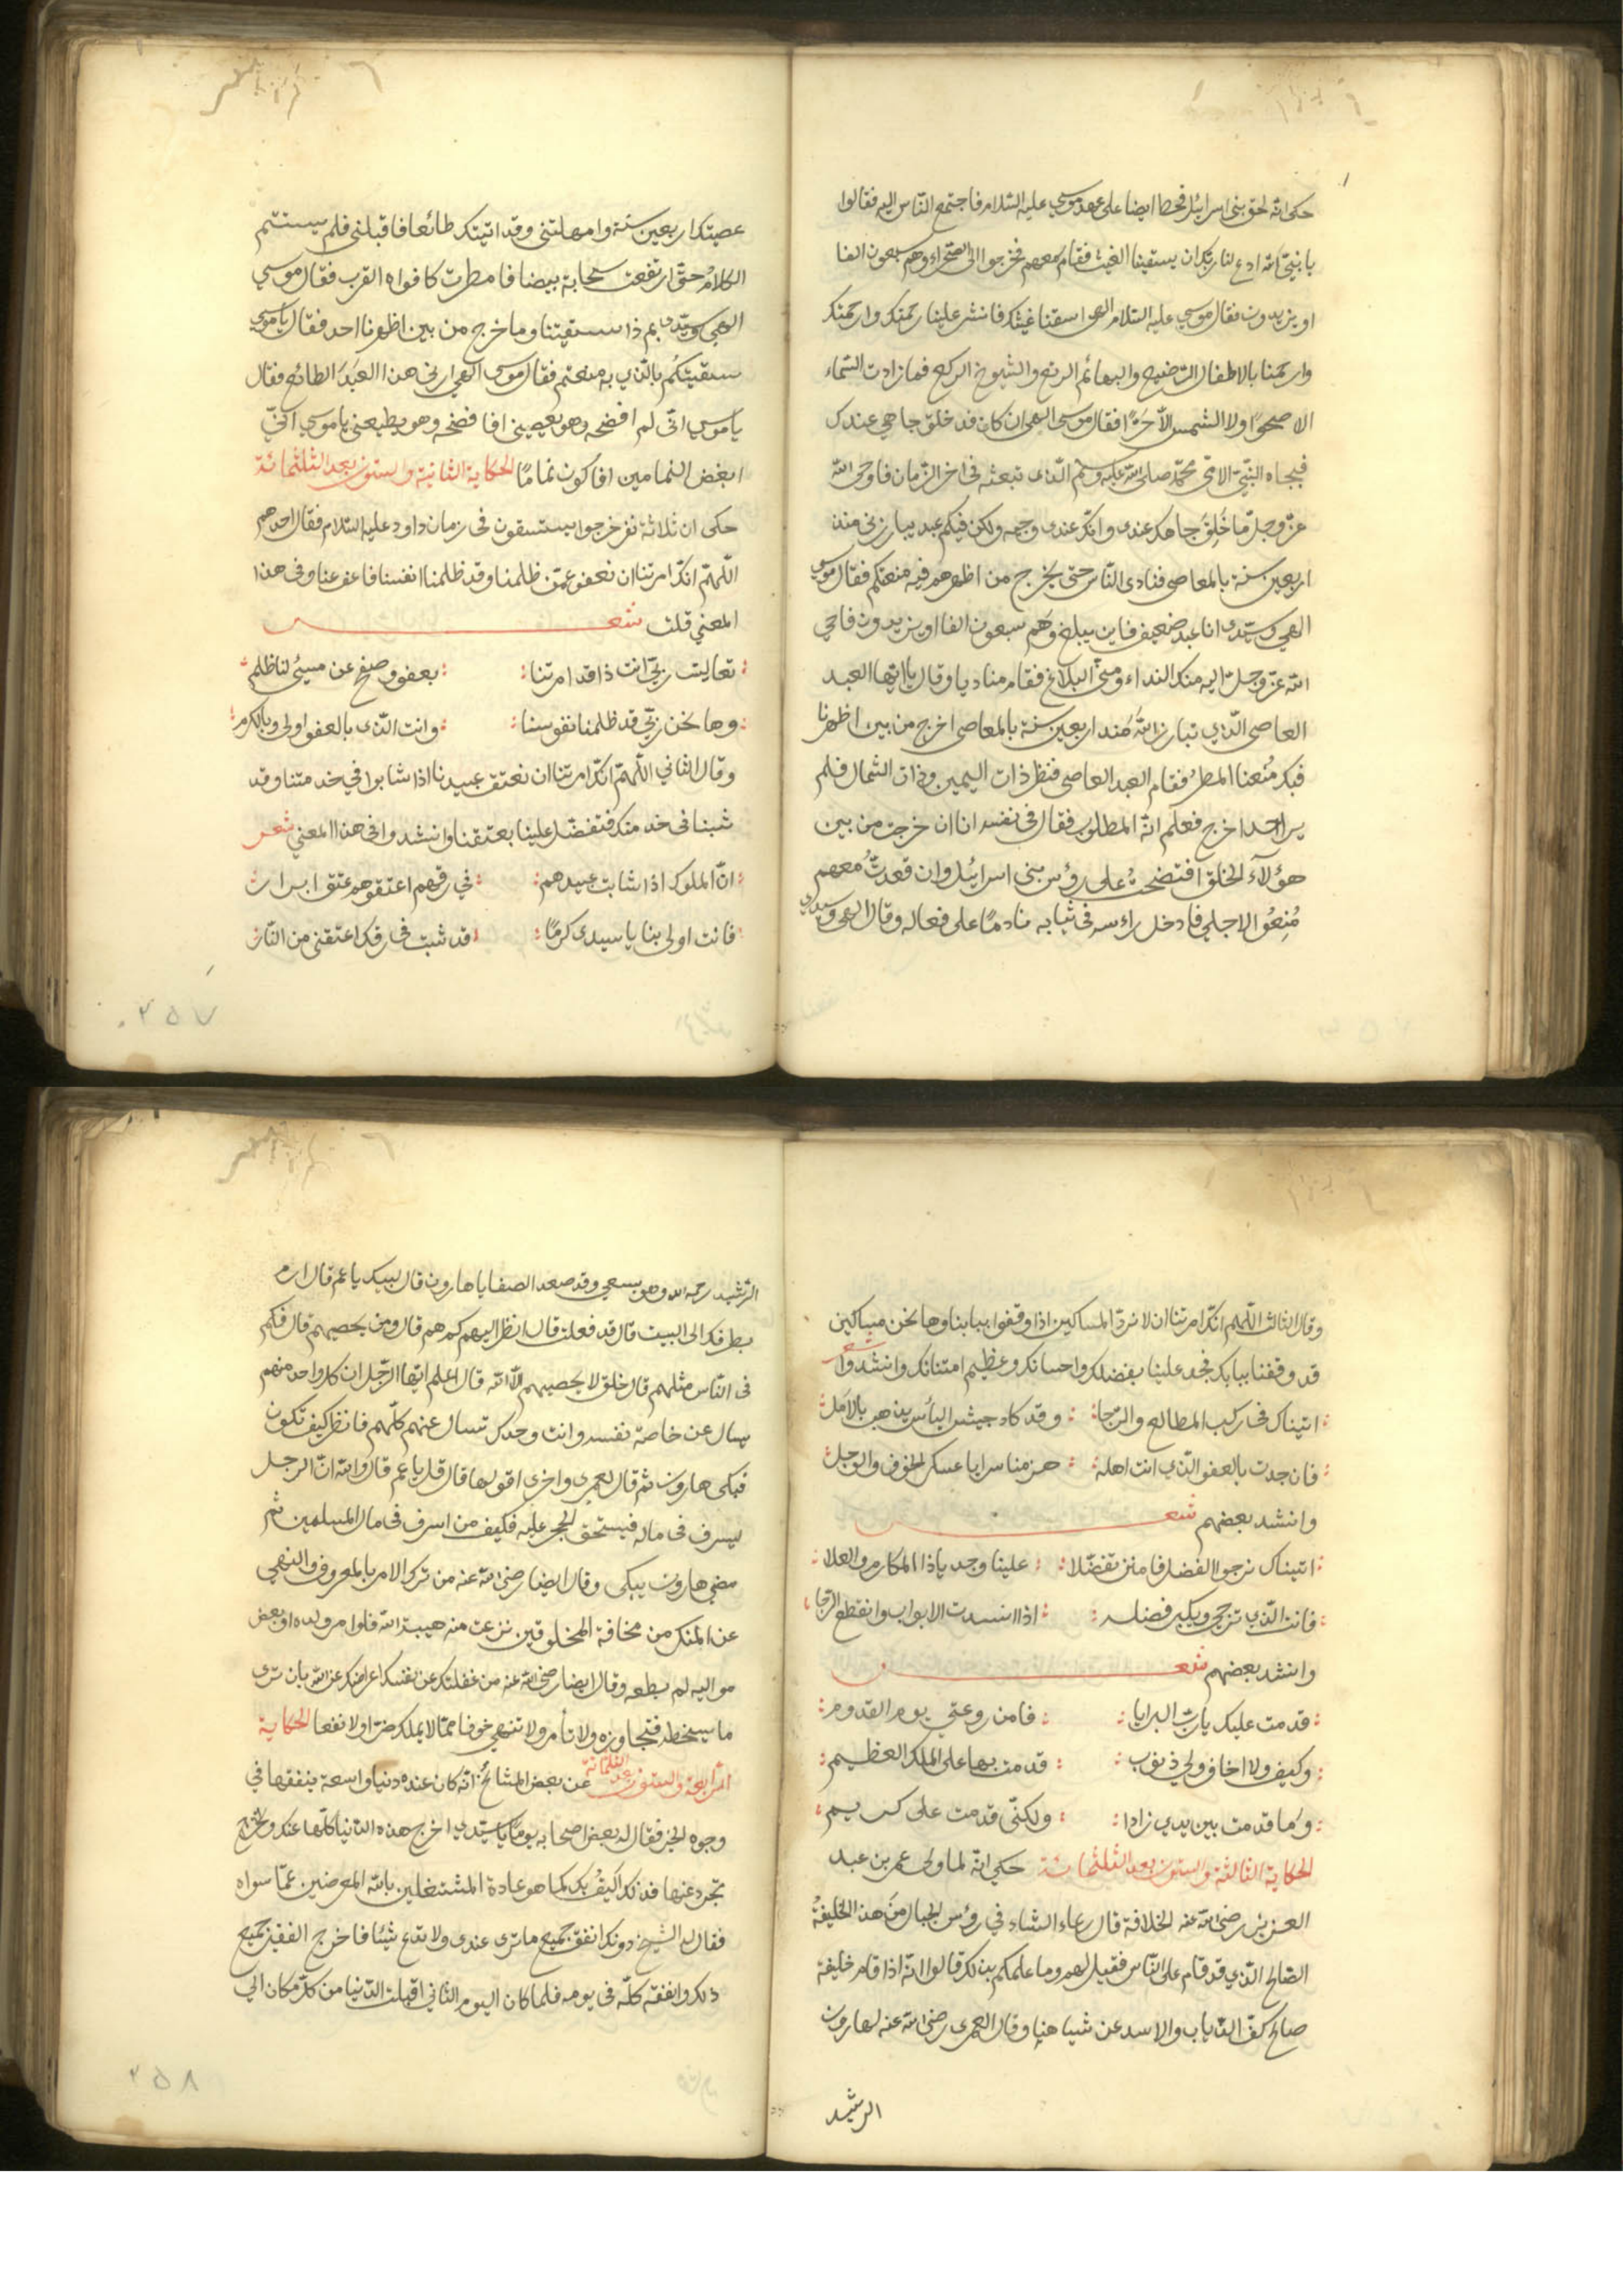 حكى انه لحق بنى اسرائيل قحط ايضا على عهد موسى عليه السلام فاجتمع الناس اليه فقالوا
يا نبى الله ادع لنا ربك ان يسقينا الغيث فقام معهم فخرجوا الى الصحراء وهم سبعون الفا
او يزيدون فقال موسى عليه السلام الهى اسقنا غيثك فانشر علينا رحمتك وارحمنك
وارحمنا بالاطفال الرضيع والبهائم الرتع والشيوخ الركع فما زادت السماء
الا صحوا ولا الشمس الا حرا فقال موسى الهى ان كان قد خلق جاهى عندك
فبجاه النبى الامى محمد صلى الله عليه وسلم الذى تبعثه فى اخر الزمان فاوحى الله
عز وجل ما خلق جاهك عندى وانك عندى وجيه ولكن فيكم عبد يبارزنى منذ
اربعين سنة بالمعاصى فنادى الناس حتى يخرج من اظهرهم فبه منعتكم فقال موسى
الهى وسيدى انا عبد ضعيف فاين يبلغ وهم سبعون الفا او يزيدون فاوحى
الله عز وجل اليه منك النداء ومنى البلاغ فقام مناديا وقال يا ايها العبد
العاصى الذى تبارز الله منذ اربعين سنة بالمعاصى اخرج من بين اظهرنا
فبك منعنا المطر فقام العبد العاصى فنظر ذات اليمين وذات الشمال فلم
ير احدا خرج فعلم انه المطلوب فقال فى نفسه انا ان خرجت من بين
هؤلاء الخلق افتضحت على رؤس بنى اسرائيل وان قعدت معهم
منعوا لاجلى فادخل راسه فى ثيابه نادما على فعاله وقال الهى وسيدى
عصيتك اربعين سنة وامهلتنى وقد اتيتك طائعا فاقبلنى فلم يستتم
الكلام حتى ارتفعت سحابة بيضا فامطرت كافواه القرب فقال موسى
الهى وسيدى بم ذا سقيتنا وما خرج من بين اظهرنا احد فقال يا موسى
سقيتكم بالذى به منعتم فقال موسى الهى ارنى هذا العبد الطائع فقال
يا موسى انى لم افضحه وهو يعصينى افافضحه وهو يطيعنى يا موسى انى
ابغض النمامين افاكون نماما الحكاية الثانية والستون بعد الثلثمائة
حكى ان ثلاثة نفر خرجوا يستسقون فى زمان داود عليه السلام فقال احدهم
اللهم انك امرتنا ان نعفو عمن ظلمنا وقد ظلمنا انفسنا فاعف عنا وفى هذا
المعنى قلت شعر
تعاليت ربى انت ذا قد امرتنا بعفو وصفح عن مسيئ لنا ظلم
وها نحن ربى قد ظلمنا نفوسنا وانت الذى بالعفو اولى وبالكرم
وقال الثانى اللهم انك امرتنا ان نعتق عبيدنا اذا شابوا فى خدمتنا وقد
شبنا فى خدمتك فتفضل علينا بعتقنا وانشدوا فى هذا المعنى شعر
ان الملوك اذا شابت عبيدهم فى رقهم اعتقوهم عتق ابرار
فانت اولى بنا يا سيدى كرما قد شبت فى رقك اعتقنى من النار
٢٥٧
وقال الثالث اللهم انك امرتنا ان لا نرد المساكين اذا وقفوا ببابنا وها نحن مساكين
قد وقفنا ببابك فجد علينا بفضلك واحسانك وعظيم امتنانك وانشدوا شعر
اتيناك فى ركب المطالع والرجا وقد كاد جيش اليأس يذهب بالامل
فان جدت بالعفو الذى انت اهله هزمنا سرايا عسكر الخوف والوجل
وانشد بعضهم شعر
اتيناك نرجوا الفضل فامنن تفضلا علينا وجد يا ذا المكارم والعلا
فانت الذى ترجى ويكبر فضله اذا انسدت الابواب وانقطع الرجا
وانشد بعضهم شعر
قدمت عليك يا رب البرايا فامن روعتى يوم القدوم
وكيف ولا اخاف ولى ذنوب قدمت بها على الملك العظيم
وما قدمت بين يدى زادا ولكنى قدمت على كريم
الحكاية الثالثة والستون بعد الثلثمائة حكى انه لما ولى عمر بن عبد
العزيز رضى الله عنه الخلافة قال رعاء الشاء فى رؤس الجبال من هذا الخليفة
الصالح الذى قد قام على الناس فقيل لهم وما علمكم بذلك قالوا انه اذا قام خليفة
صالح كف الذياب والاسد عن شياهنا وقال العمرى رضى الله عنه لهارون
الرشيد
الرشيد رحمه الله وهو يسعى وقد صعد الصفا يا هارون قال لبيك يا عم قال ارم
بطرفك الى البيت قال قد فعلت قال انظر اليهم كم هم قال ومن يحصيهم قال فكم
فى الناس مثلهم قال خلق لا يحصيهم الا الله قال اعلم ايها الرجل ان كل واحد منهم
يسال عن خاصة نفسه وانت وحدك تسال عنهم كلهم فانظر كيف تكون
فبكى هارون ثم قال العمرى واخرى اقولها قال قل يا عم قال والله ان الرجل
ليسرف فى ماله فيستحق الحجر عليه فكيف من اسرف فى مال المسلمين ثم
مضى هارون يبكى وقال ايضا رضى الله عنه من ترك الامر بالمعروف والنهى
عن المنكر من مخافة المخلوقين نزعت منه هيبة الله فلو امر ولده او بعض
مواليه لم يطعه وقال ايضا رضى الله عنه من غفلتك عن نفسك اعراضك عن الله بان ترى
ما يسخطه فتجاوزه ولا تأمر ولا تنهى خوفا ممن لا يملك ضرا ولا نفعا الحكاية
الرابعة والستون بعد الثلثمائة عن بعض المشائخ انه كان عنده دنيا واسعة ينفقها فى
وجوه الخير فقال له بعض اصحابه يوما يا سيدى اخرج هذه الدنيا كلها عنك
تجرد عنها فذلك اليق بك كما هو عادة المشتغلين بالله المعرضين عما سواه
فقال له الشيخ دونك انفق جميع ما ترى عندى ولا تدع شيئا فاخرج الفقير جميع
ذلك وانفقه كله فى يومه فلما كان اليوم الثانى اقبلت الدنيا من كل مكان الى
٢٥٨